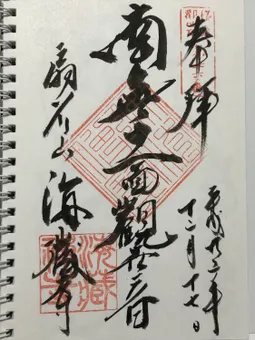 奉拝
平成
十二月十七日
南無十一面觀世音
扇谷山
海藏寺